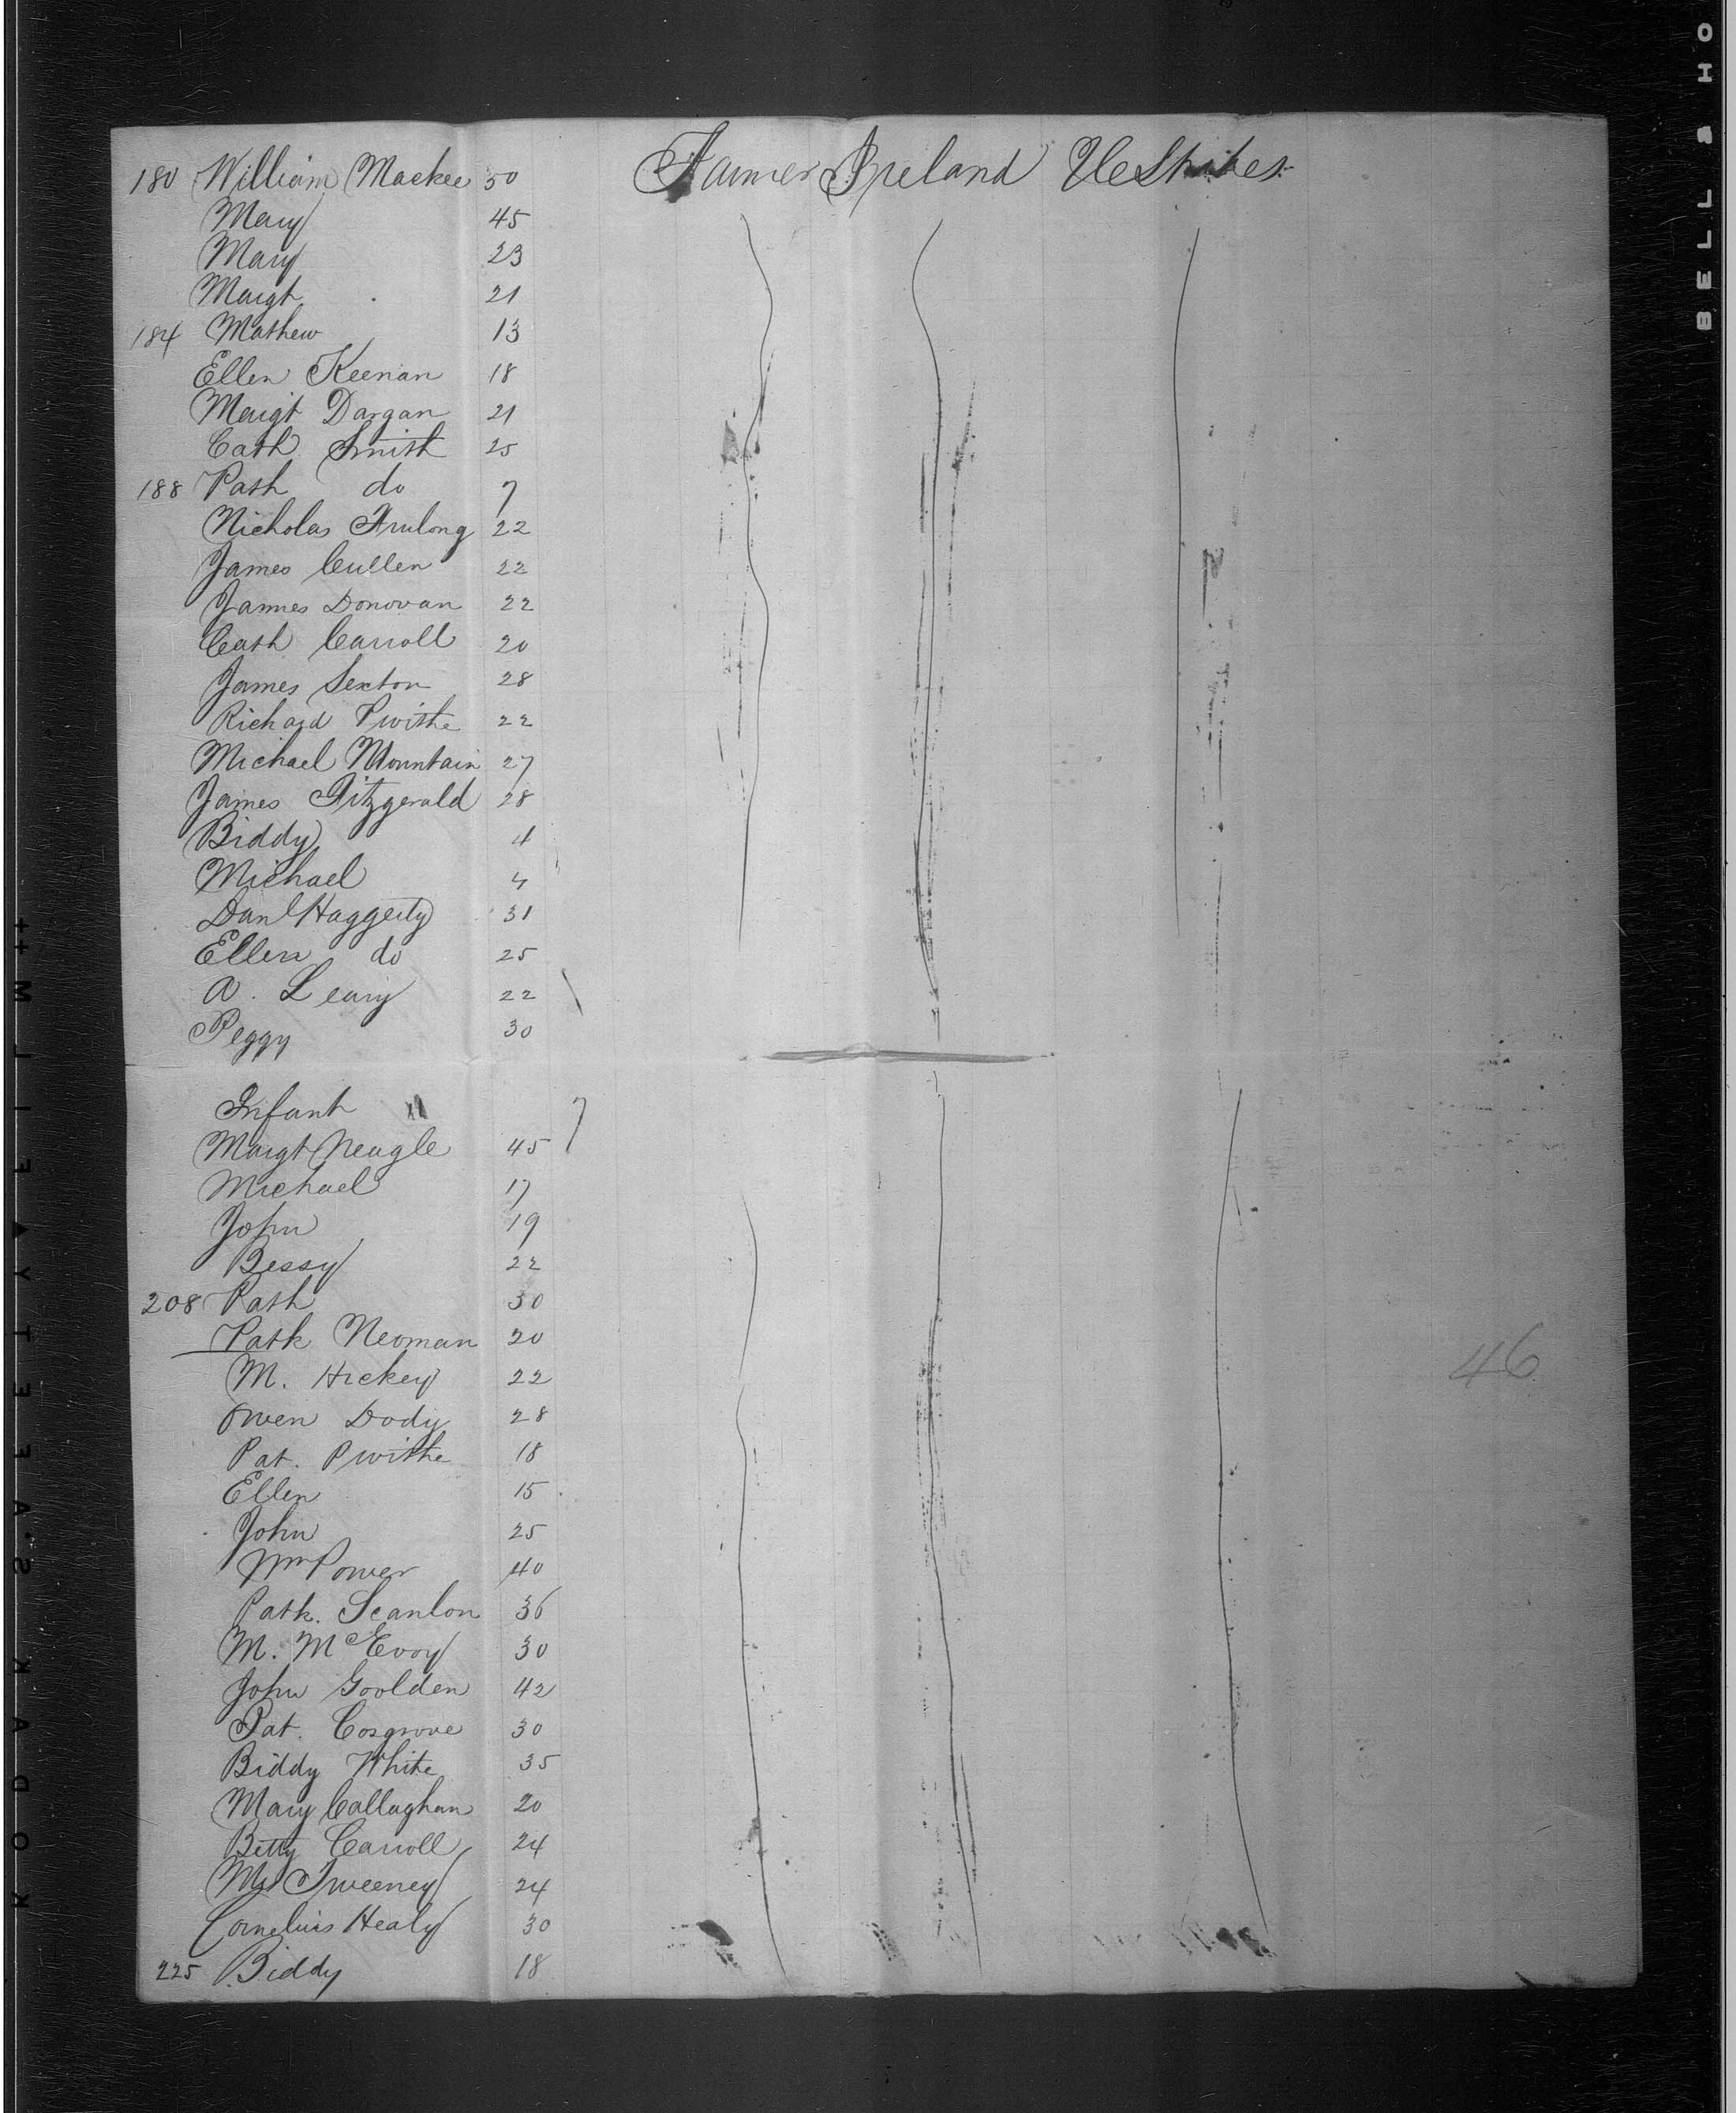 180 William Mackee 50 Farmer Ireland U States
Mary 45
Mary 23
Margt 21
184 Mathew 13
Ellen Keenan 18
Margt Dargan 21
Cath Smith 25
188 Path do 7
Nicholas Frulong 22
James Cullen 22
James Donovan 22
Cath Carroll 20
James Sexton 28
Richard Pwithe 22
Michael Mountain 27
James Fitzgerald 28
Biddy 4
Michael 4
Danl Haggerty 31
Ellen do 25
A. Leary 22
Peggy 30
Infant
Margt Neagle 45
Michael 17
John 19
Bessy 22
208 Path 30
Patk Neoman 20
M. Hickey 22
Owen Dody 28
Pat. Pwithe 18
Ellen 15
John 25
Wm Power 40
Patk. Scanlon 36
M. McEvoy 30
John Goolden 42
Pat. Cosgrove 30
Biddy White 35
Mary Callaghan 20
Betty Carroll 24
Sweeney 24
Cornelius Healy 30
225 Biddy 18
46
BELL & HO
KODAK